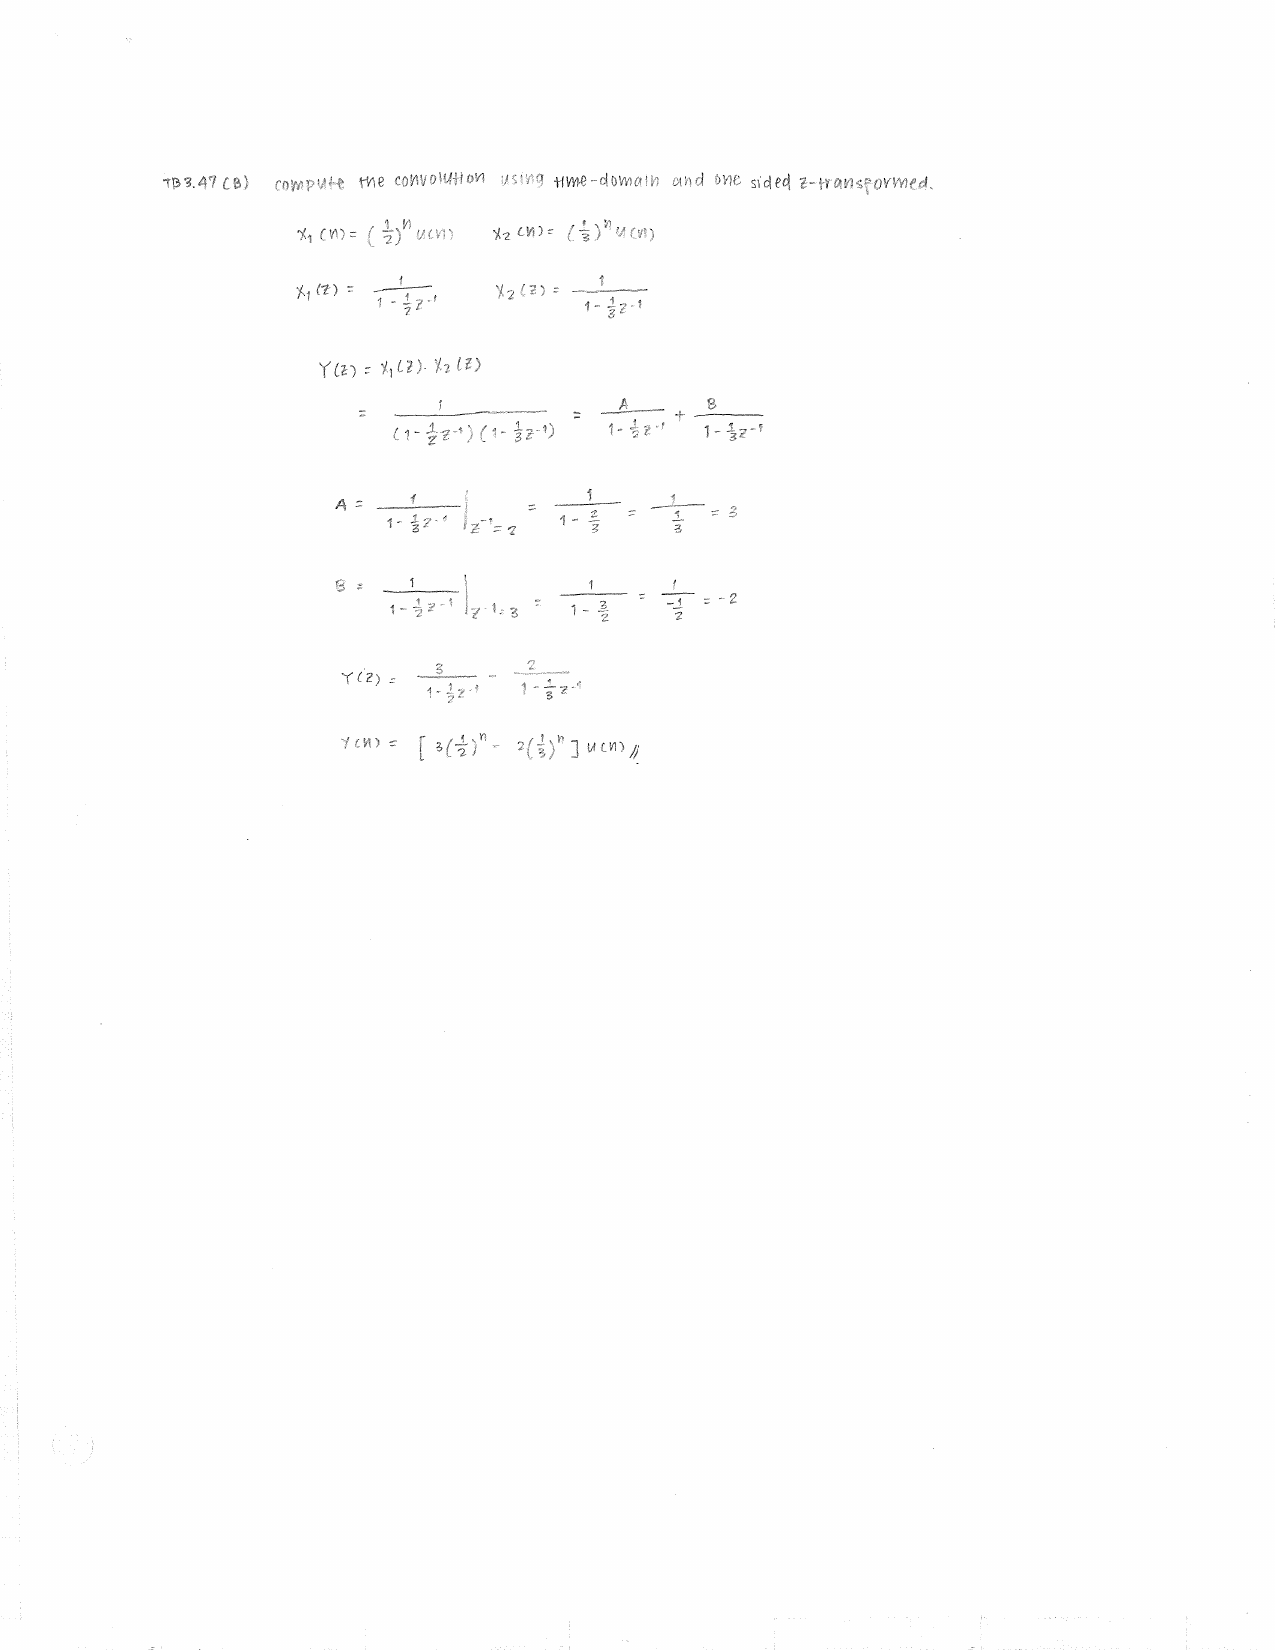 TB 3.47 (B) compute the convolution using time-domain and one sided z-transformed.
x₁(n) = (1/2)ⁿ u(n) x₂(n) = (1/3)ⁿ u(n)
X₁(z) = 1/(1 - 1/2 z⁻¹) X₂(z) = 1/(1 - 1/3 z⁻¹)
Y(z) = X₁(z) · X₂(z)
= 1/((1 - 1/2 z⁻¹)(1 - 1/3 z⁻¹)) = A/(1 - 1/2 z⁻¹) + B/(1 - 1/3 z⁻¹)
A = 1/(1 - 1/3 z⁻¹) |z⁻¹ = 2 = 1/(1 - 2/3) = 1/(1/3) = 3
B = 1/(1 - 1/2 z⁻¹) |z⁻¹ = 3 = 1/(1 - 3/2) = 1/(-1/2) = -2
Y(z) = 3/(1 - 1/2 z⁻¹) - 2/(1 - 1/3 z⁻¹)
y(n) = [3(1/2)ⁿ - 2(1/3)ⁿ] u(n) //